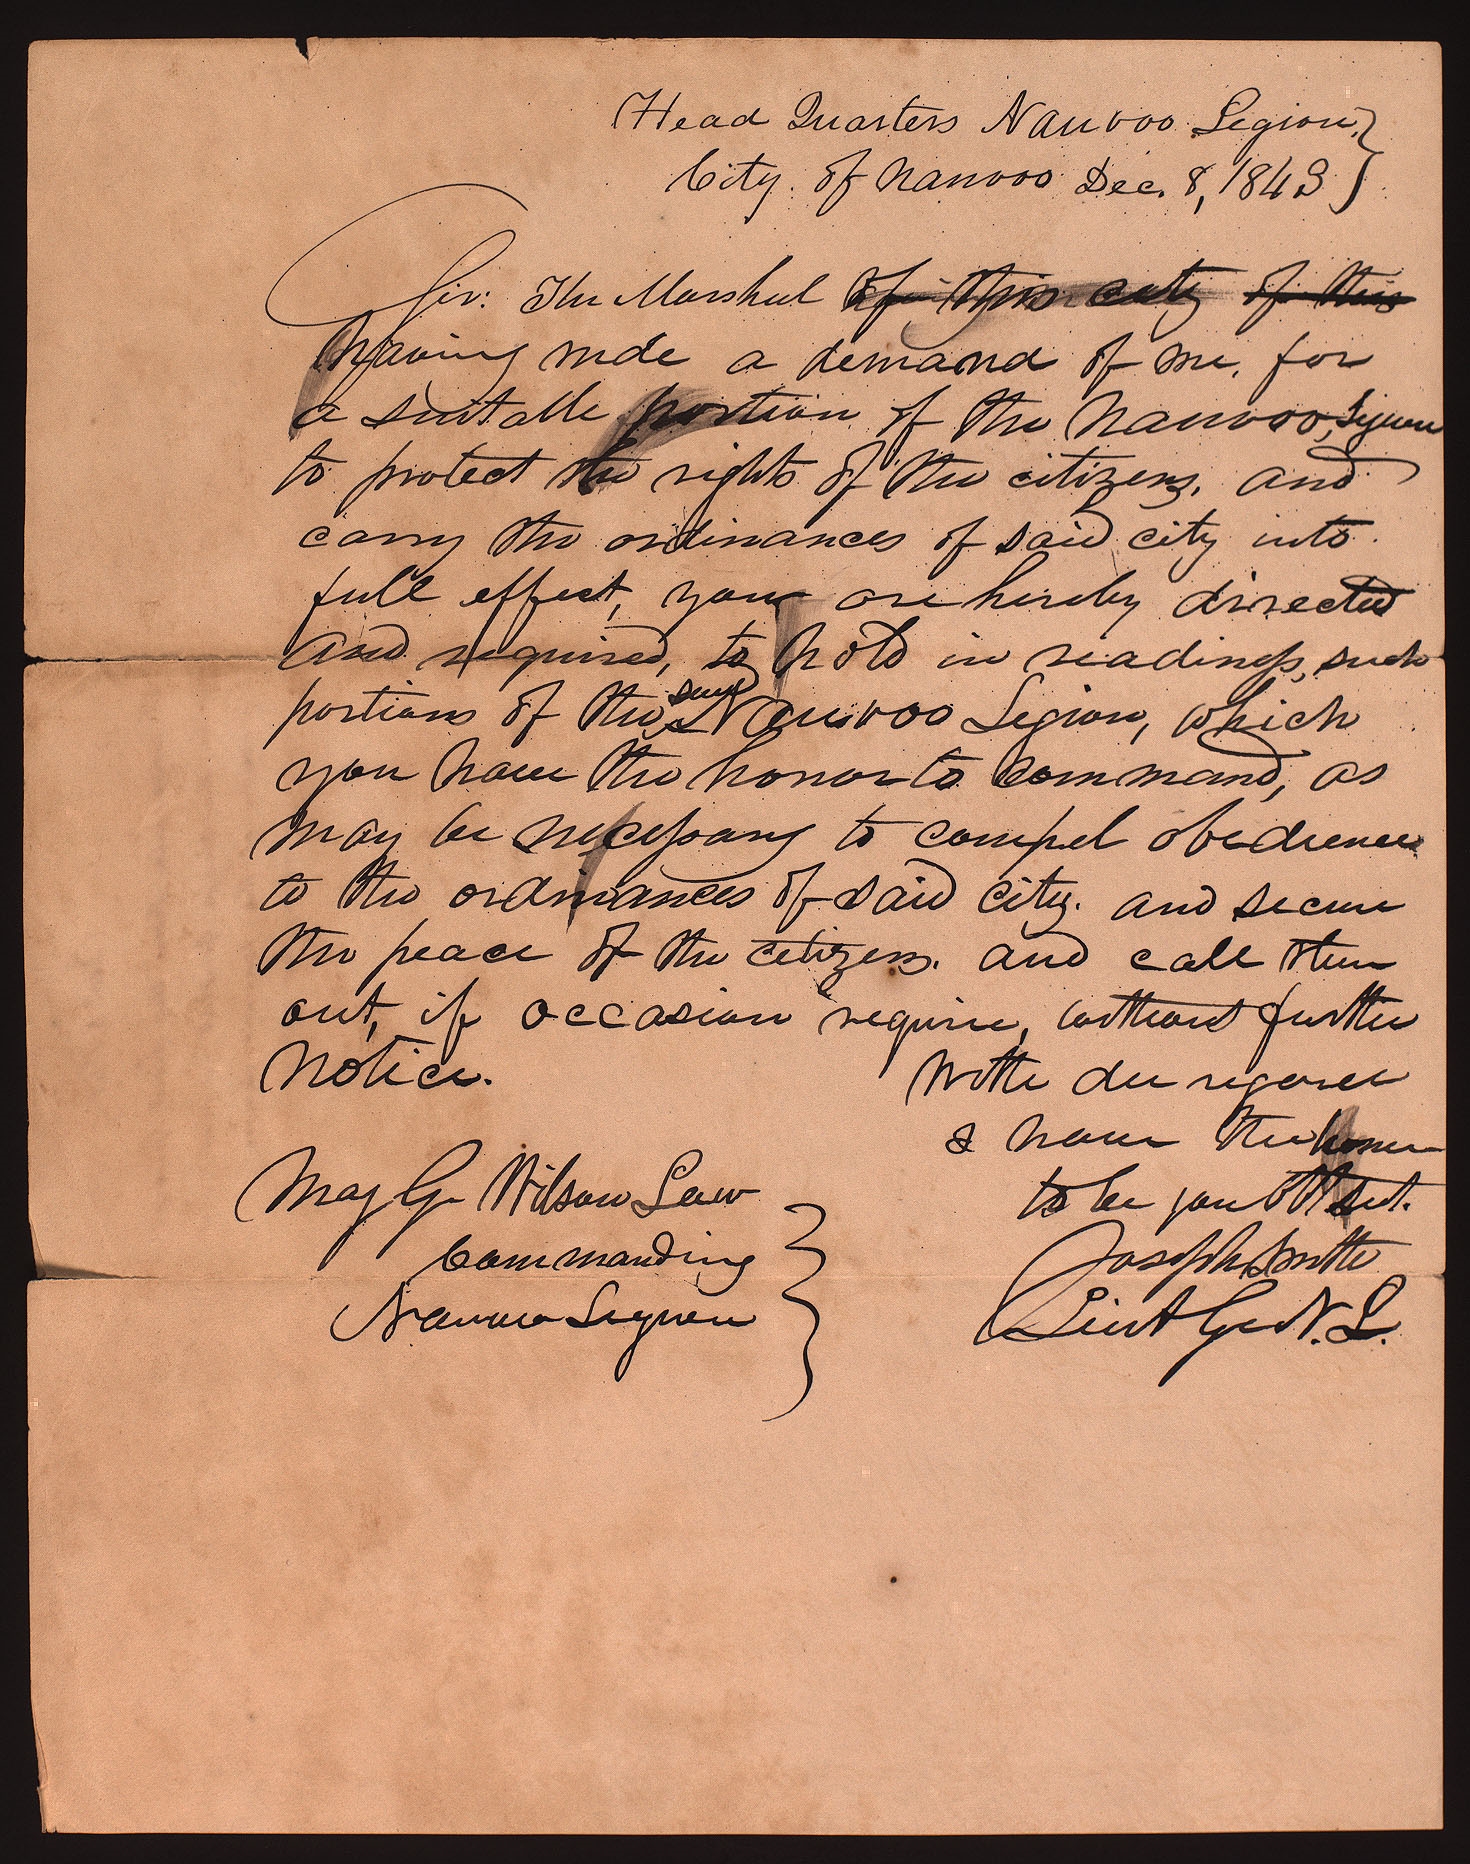 Head Quarters Nauvoo Legion,
City of Nauvoo Dec. 8, 1843
Sir: The Marshal of this city of this
having mde a demand of me, for
a suitable portion of the Nauvoo, Legion
to protect the rights of the citizens, and
carry the ordinances of said city into
full effect, you are hereby directed
and required, to hold in readiness, such
portions of the said Nauvoo Legion, which
you have the honor to command, as
may be necessary to compel obedience
to the ordinances of said city. and secure
the peace of the citizens. and call them
out, if occasion require, without further
notice.
With due regard
I have the honor
to be your Obt Sert.
Joseph Smith
Lieut Gen N. L.
Maj Gn Wilson Law
Commanding
Nauvoo Legion